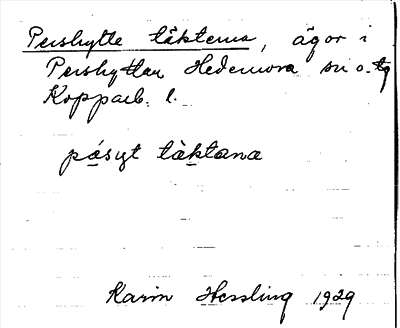 Pershytte täkterna, ägor i
Pershyttan Hedemora sn o. tg
Kopparb. l.
pásyt tàktana
Karin Hessling 1929